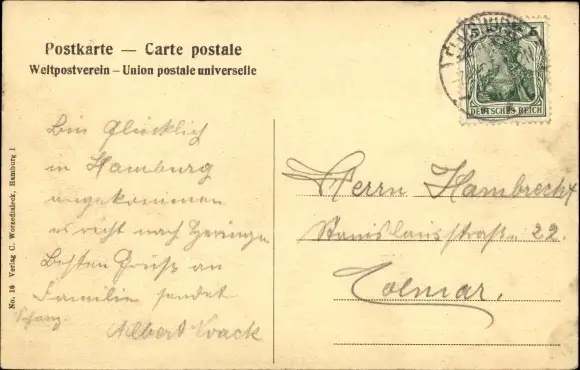 Postkarte — Carte postale
Weltpostverein – Union postale universelle
5 5
DEUTSCHES REICH
Bin Glücklich
in Hamburg
angekommen
es riecht nach
Besten Gruß an
Familie sendet
Albert Voack
Herrn Hambrecht
Stanislausstraße 22.
Colmar.
No. 16 Verlag C. Worzedialeck, Hamburg 1